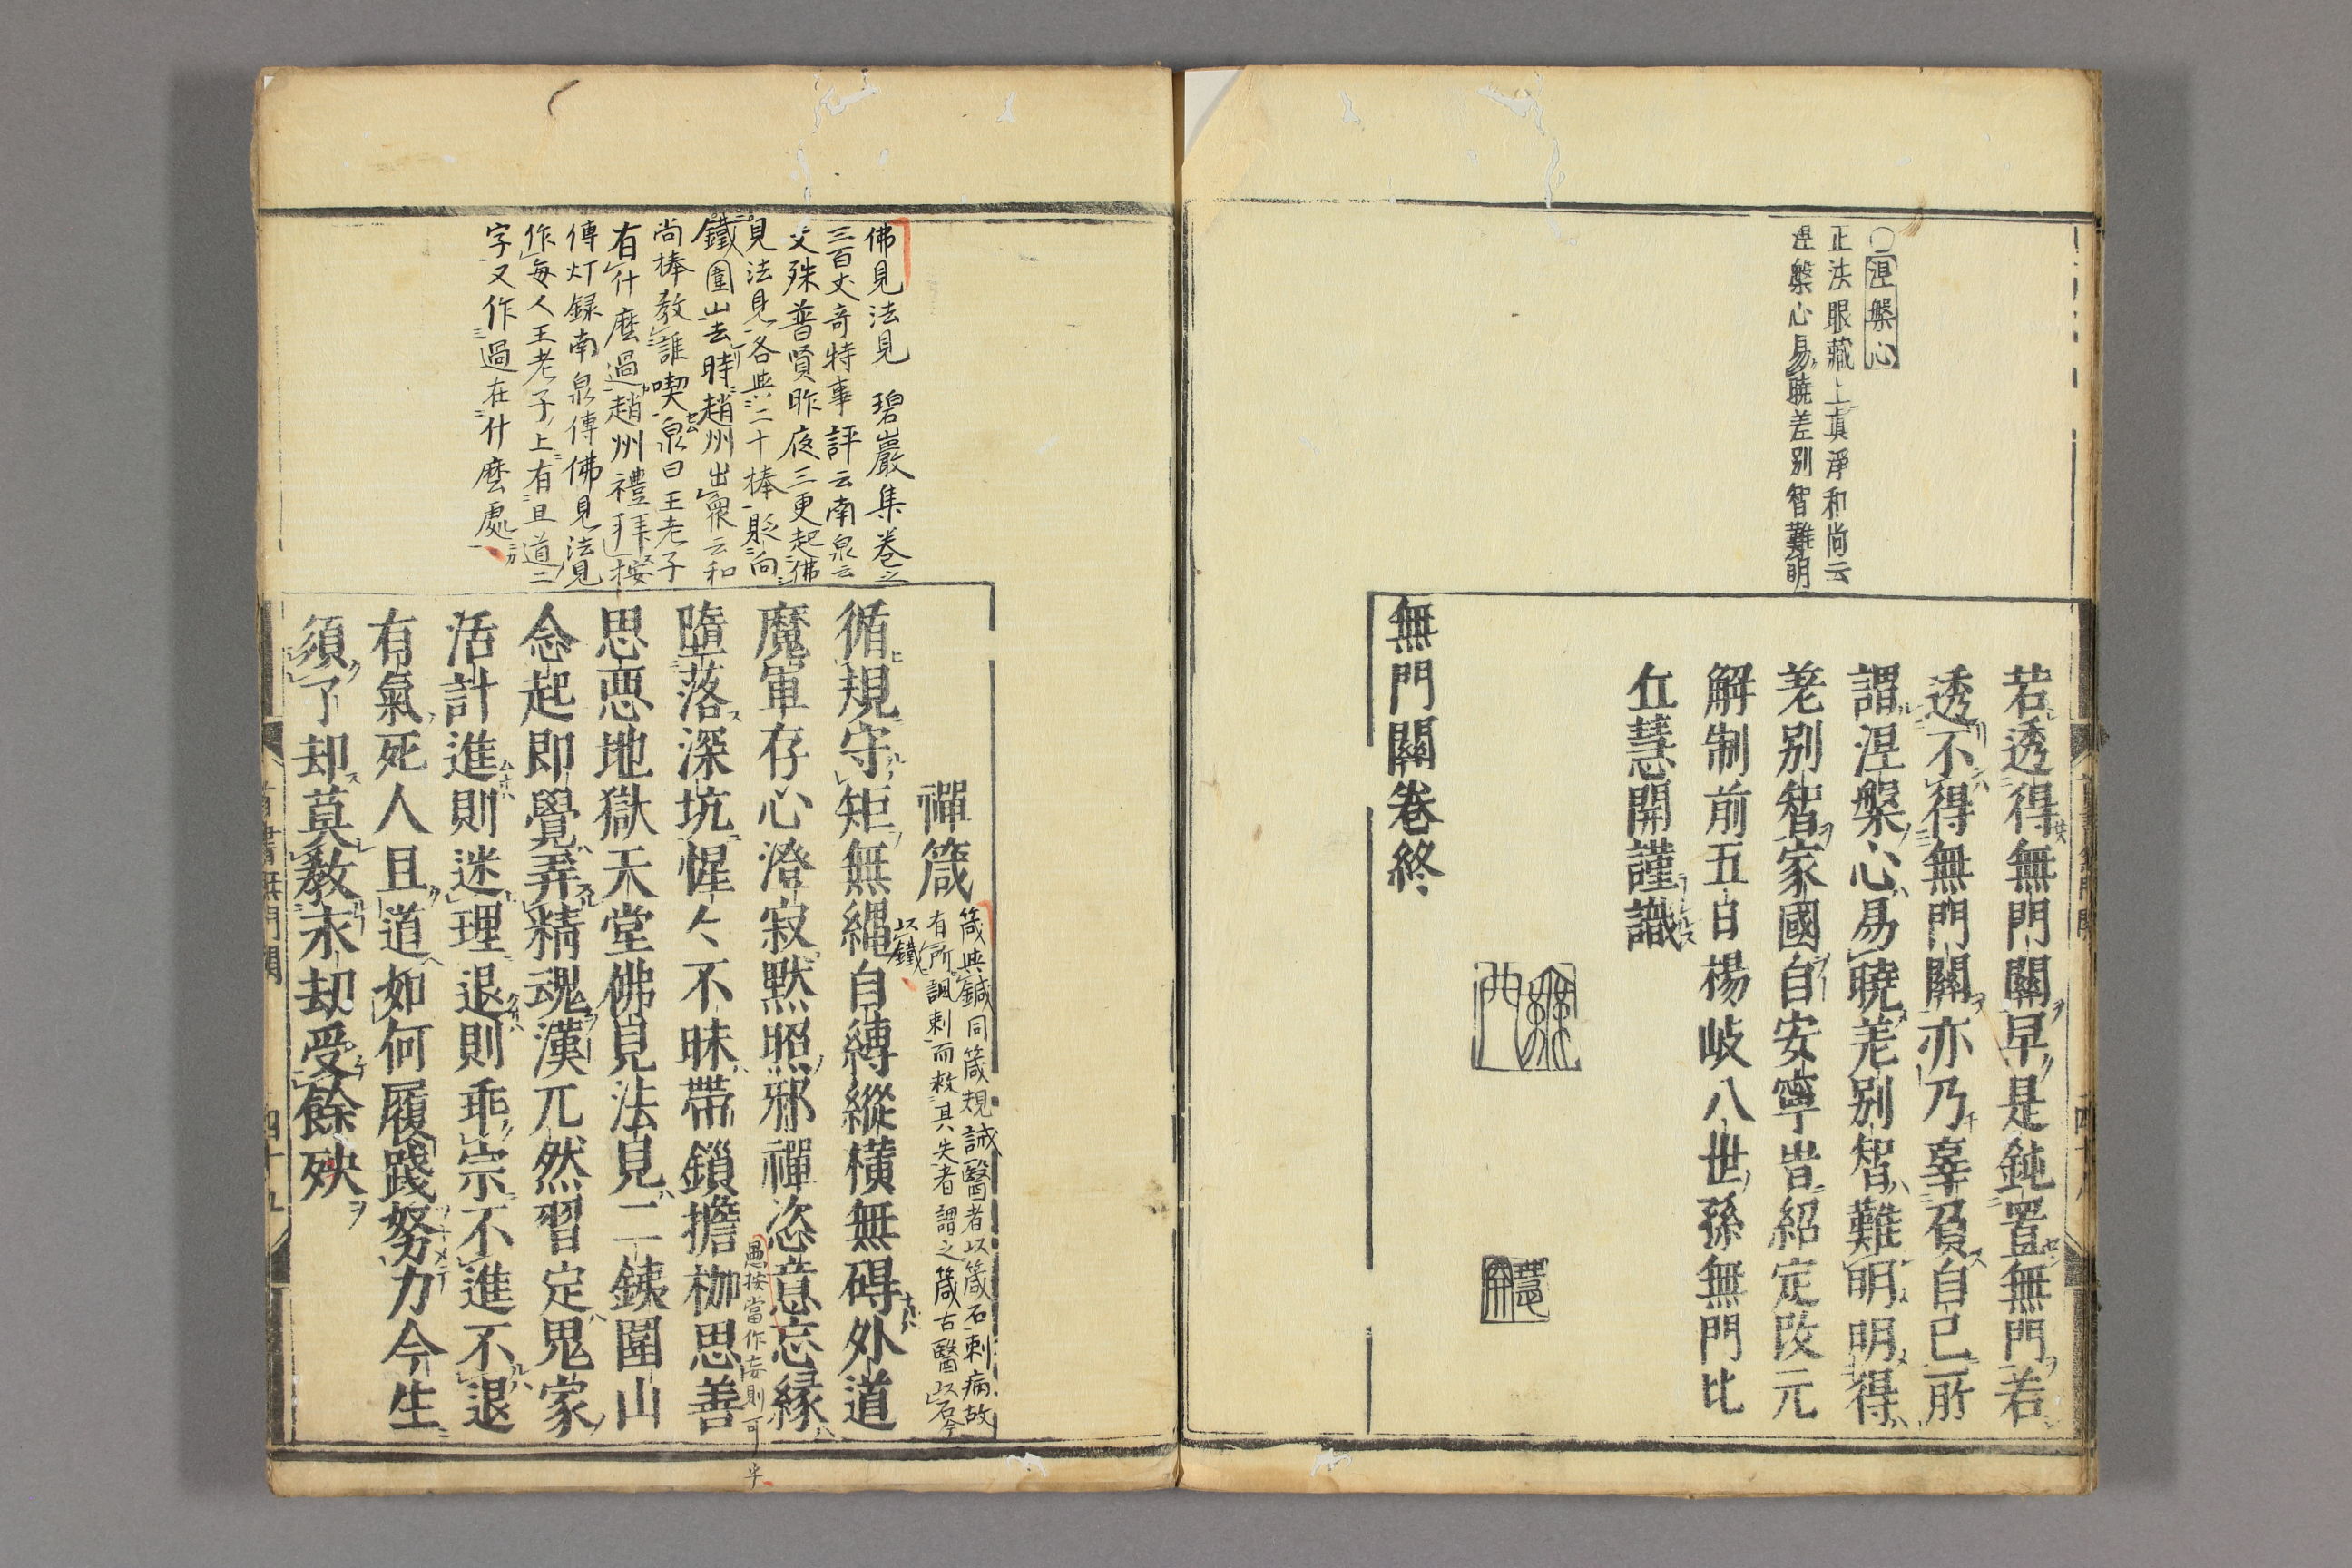 〇涅槃心
正法眼藏上真淨和尚云
涅槃心易曉差別智難明
若透得無門關早是鈍置無門若
透不得無門關亦乃辜負自己所
謂涅槃心易曉差別智難明明得
差別智家國自安寧旹紹定改元
解制前五日楊岐八世孫無門比
丘慧開謹識
無門
慧開
無門關卷終
佛見法見 碧巖集卷之
三百丈奇特事評云南泉云
文殊普賢昨夜三更起佛
見法見各與二十棒貶向
鐵圍山去時趙州出衆云和
尚棒教誰喫泉曰王老子
有什麼過趙州禮拜按
傳灯録南泉傳佛見法見
作每人王老子上有且道二
字又作過在什麼處
禪箴
箴與鍼同箴規誡醫者以箴石刺病故
有所諷刺而救其失者謂之箴古醫以石今
以鐵
循規守矩無繩自縛縱橫無碍外道
魔軍存心澄寂默照邪禪恣意忘緣
愚按當作妄則可乎
墮落深坑惺〻不昧帶鎖擔枷思善
思惡地獄天堂佛見法見二鐵圍山
念起即覺弄精魂漢兀然習定鬼家
活計進則迷理退則乖宗不進不退
有氣死人且道如何履踐努力今生
須了却莫教末劫受餘殃
首書無門關 四十九